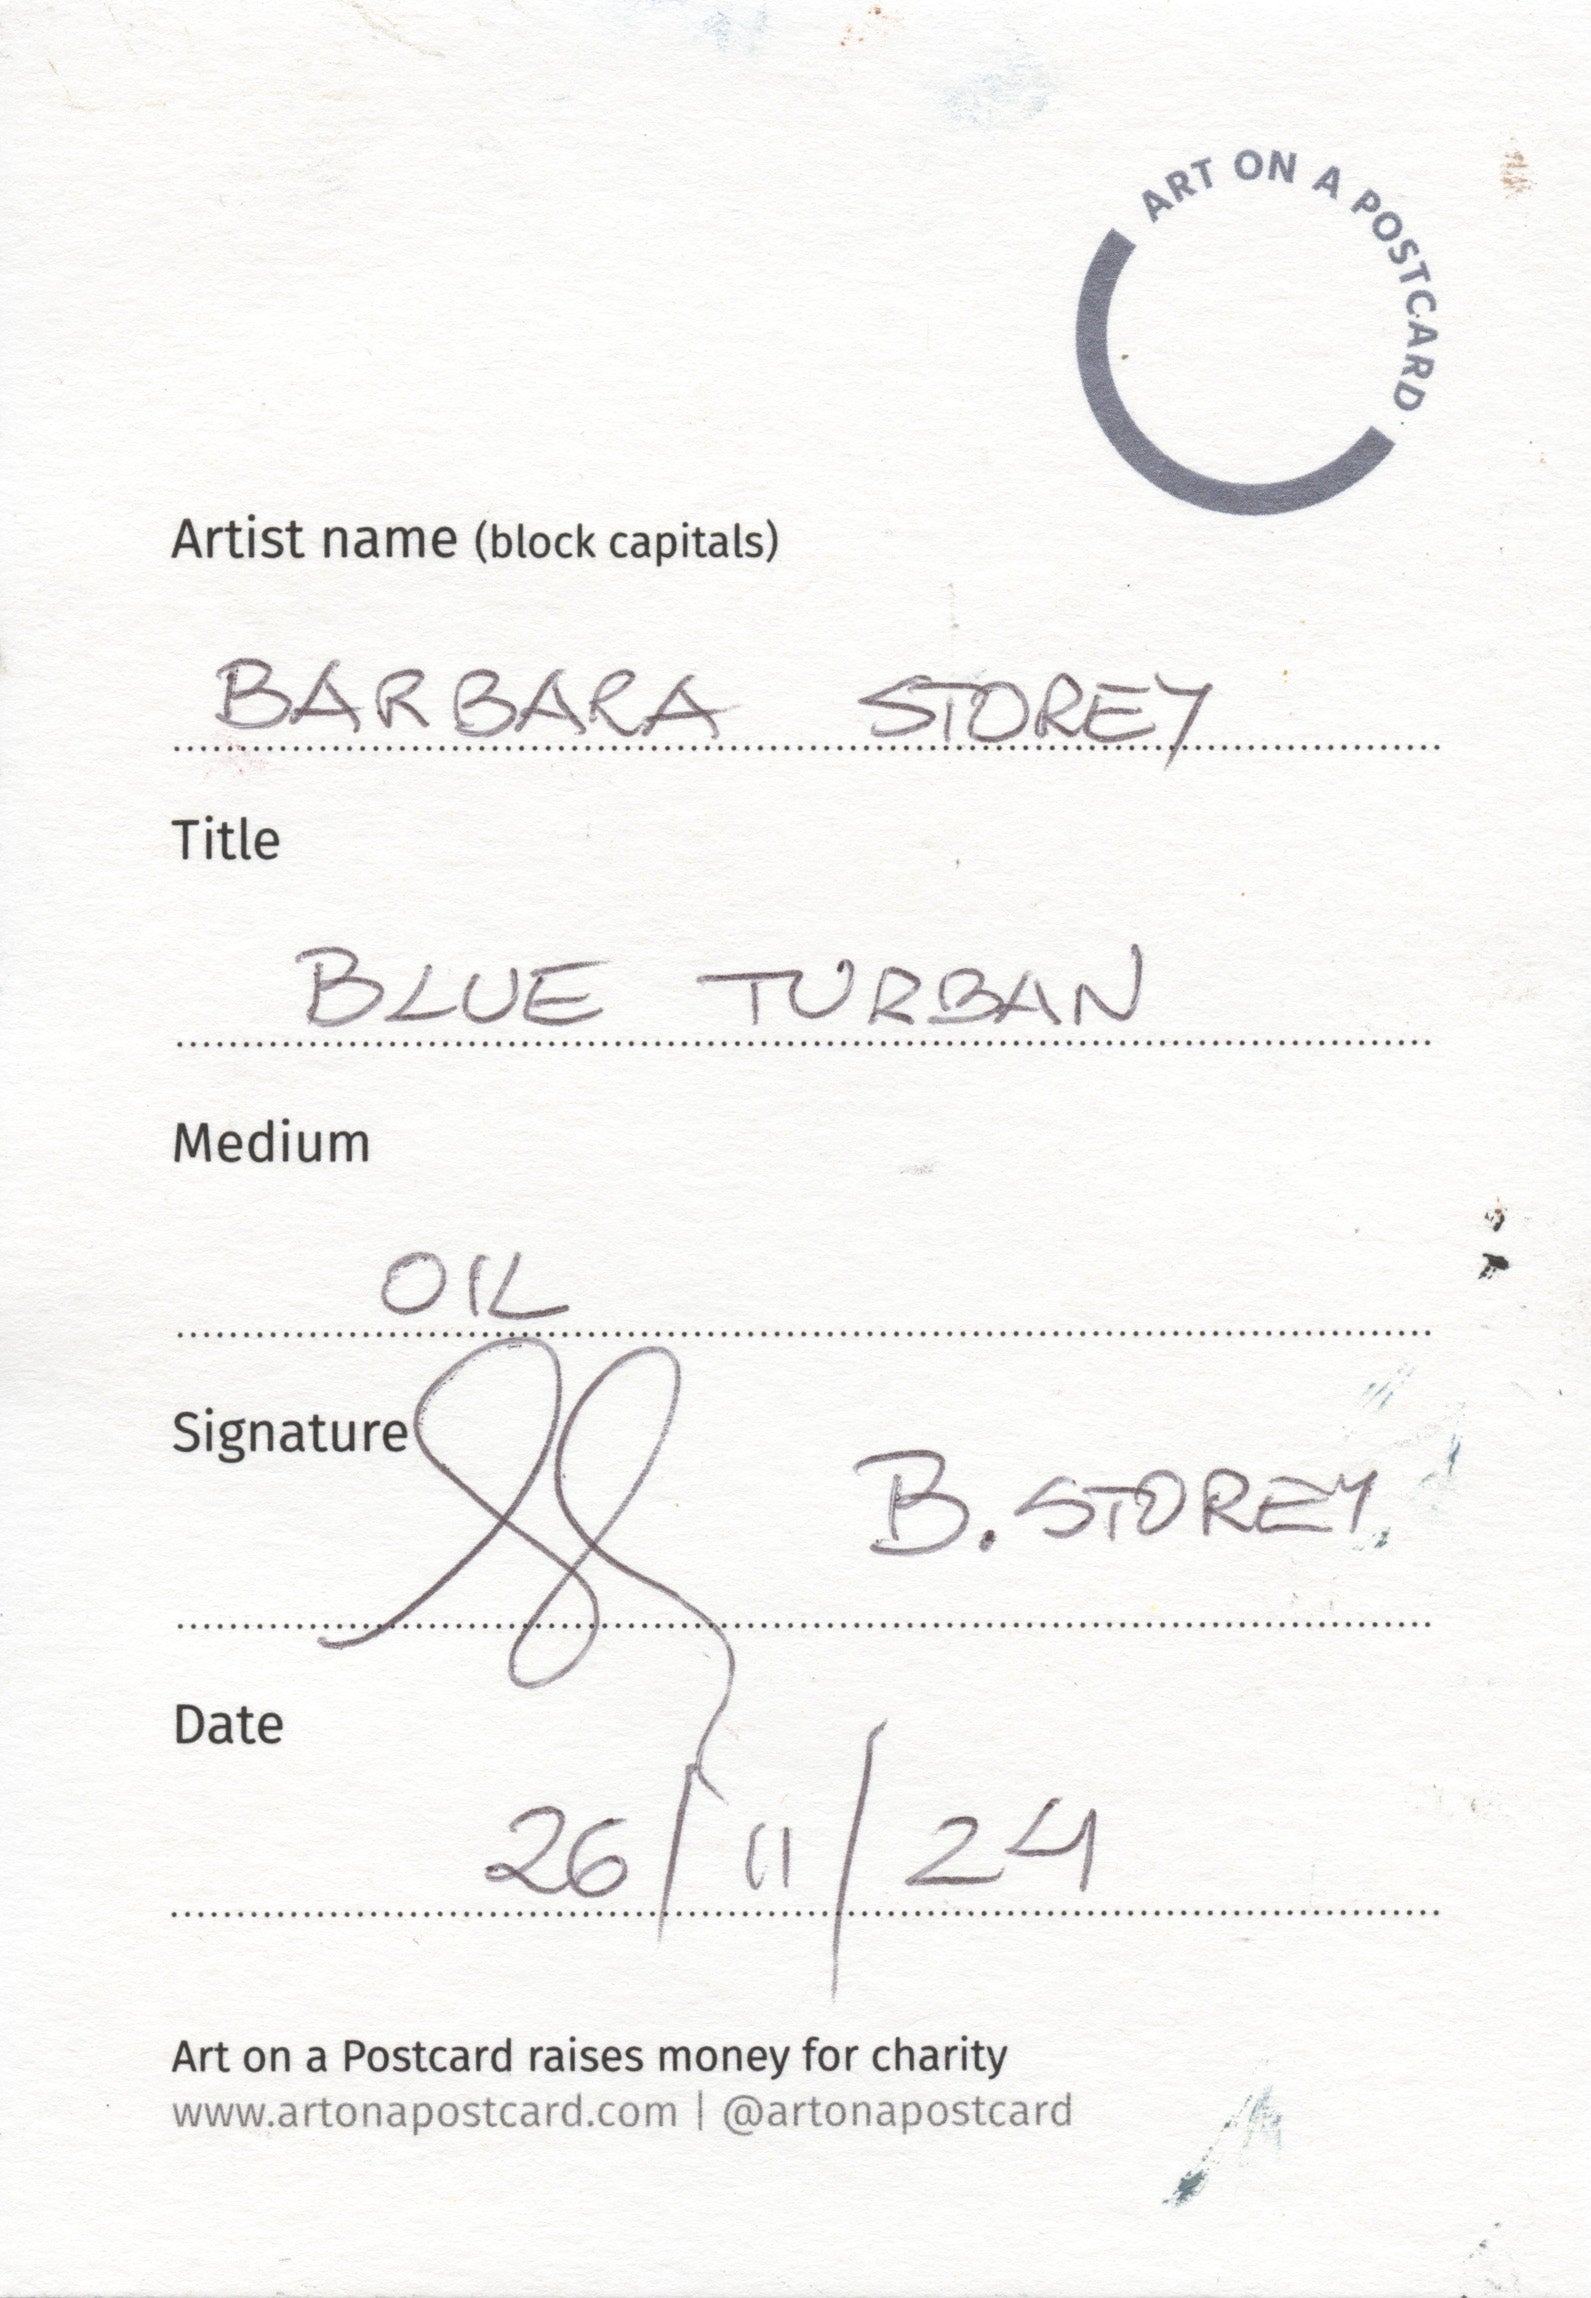 ART ON A POSTCARD
Artist name (block capitals)
BARBARA STOREY
Title
BLUE TURBAN
Medium
OIL
Signature
B. STOREY
Date
26/11/24
Art on a Postcard raises money for charity
www.artonapostcard.com | @artonapostcard